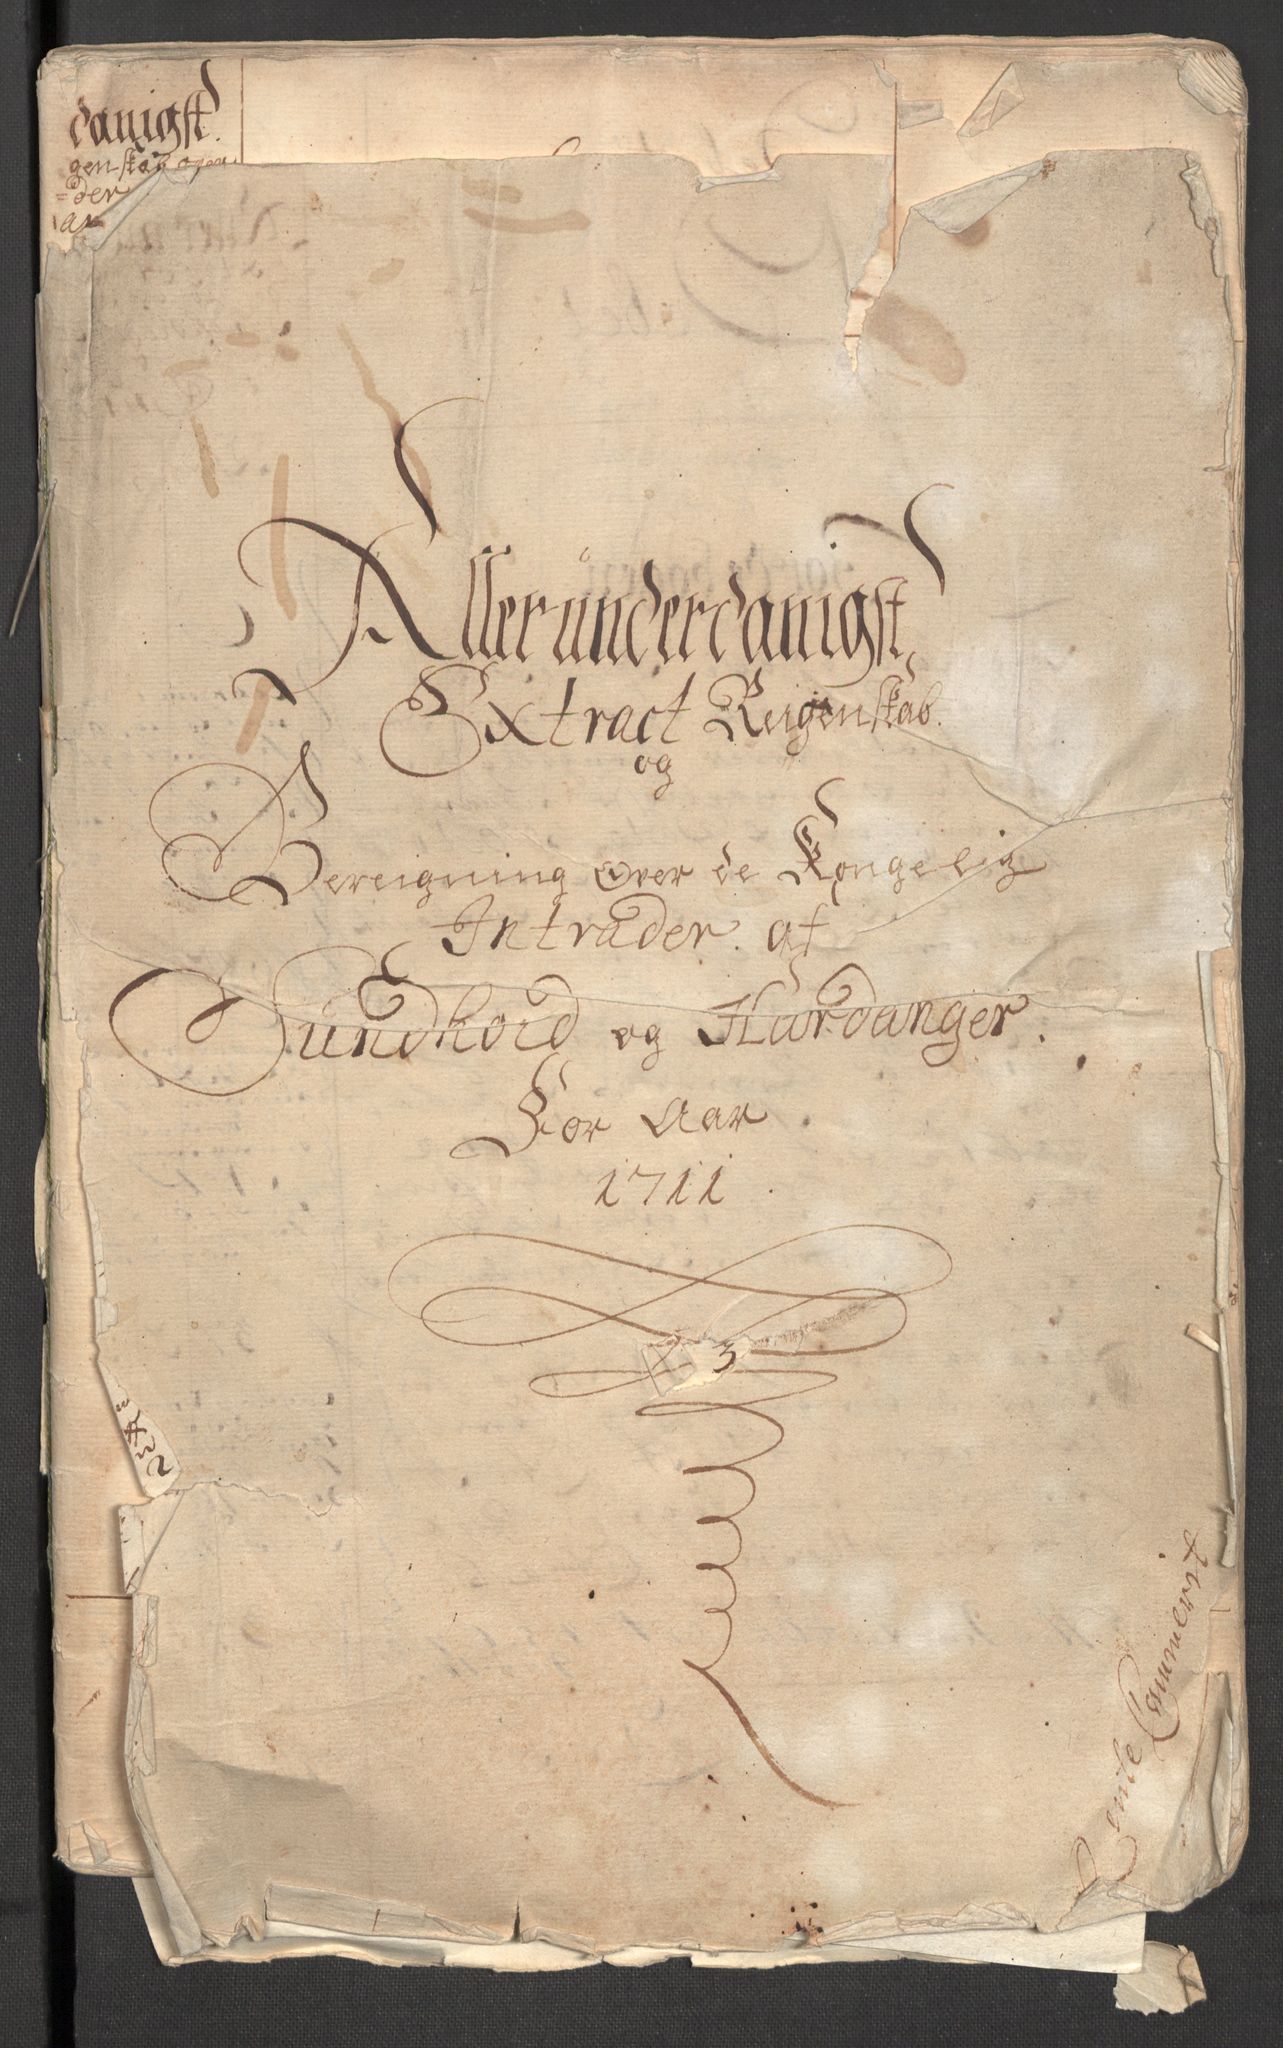 danigst.
genskab over
der
ar
Allerunderdanigst
Extract Reigenskab.
og
Bereigning over de Kongelig
Intrader af
Sundhord og Hardanger.
For Aar
1711.
3
Rente Cammerit